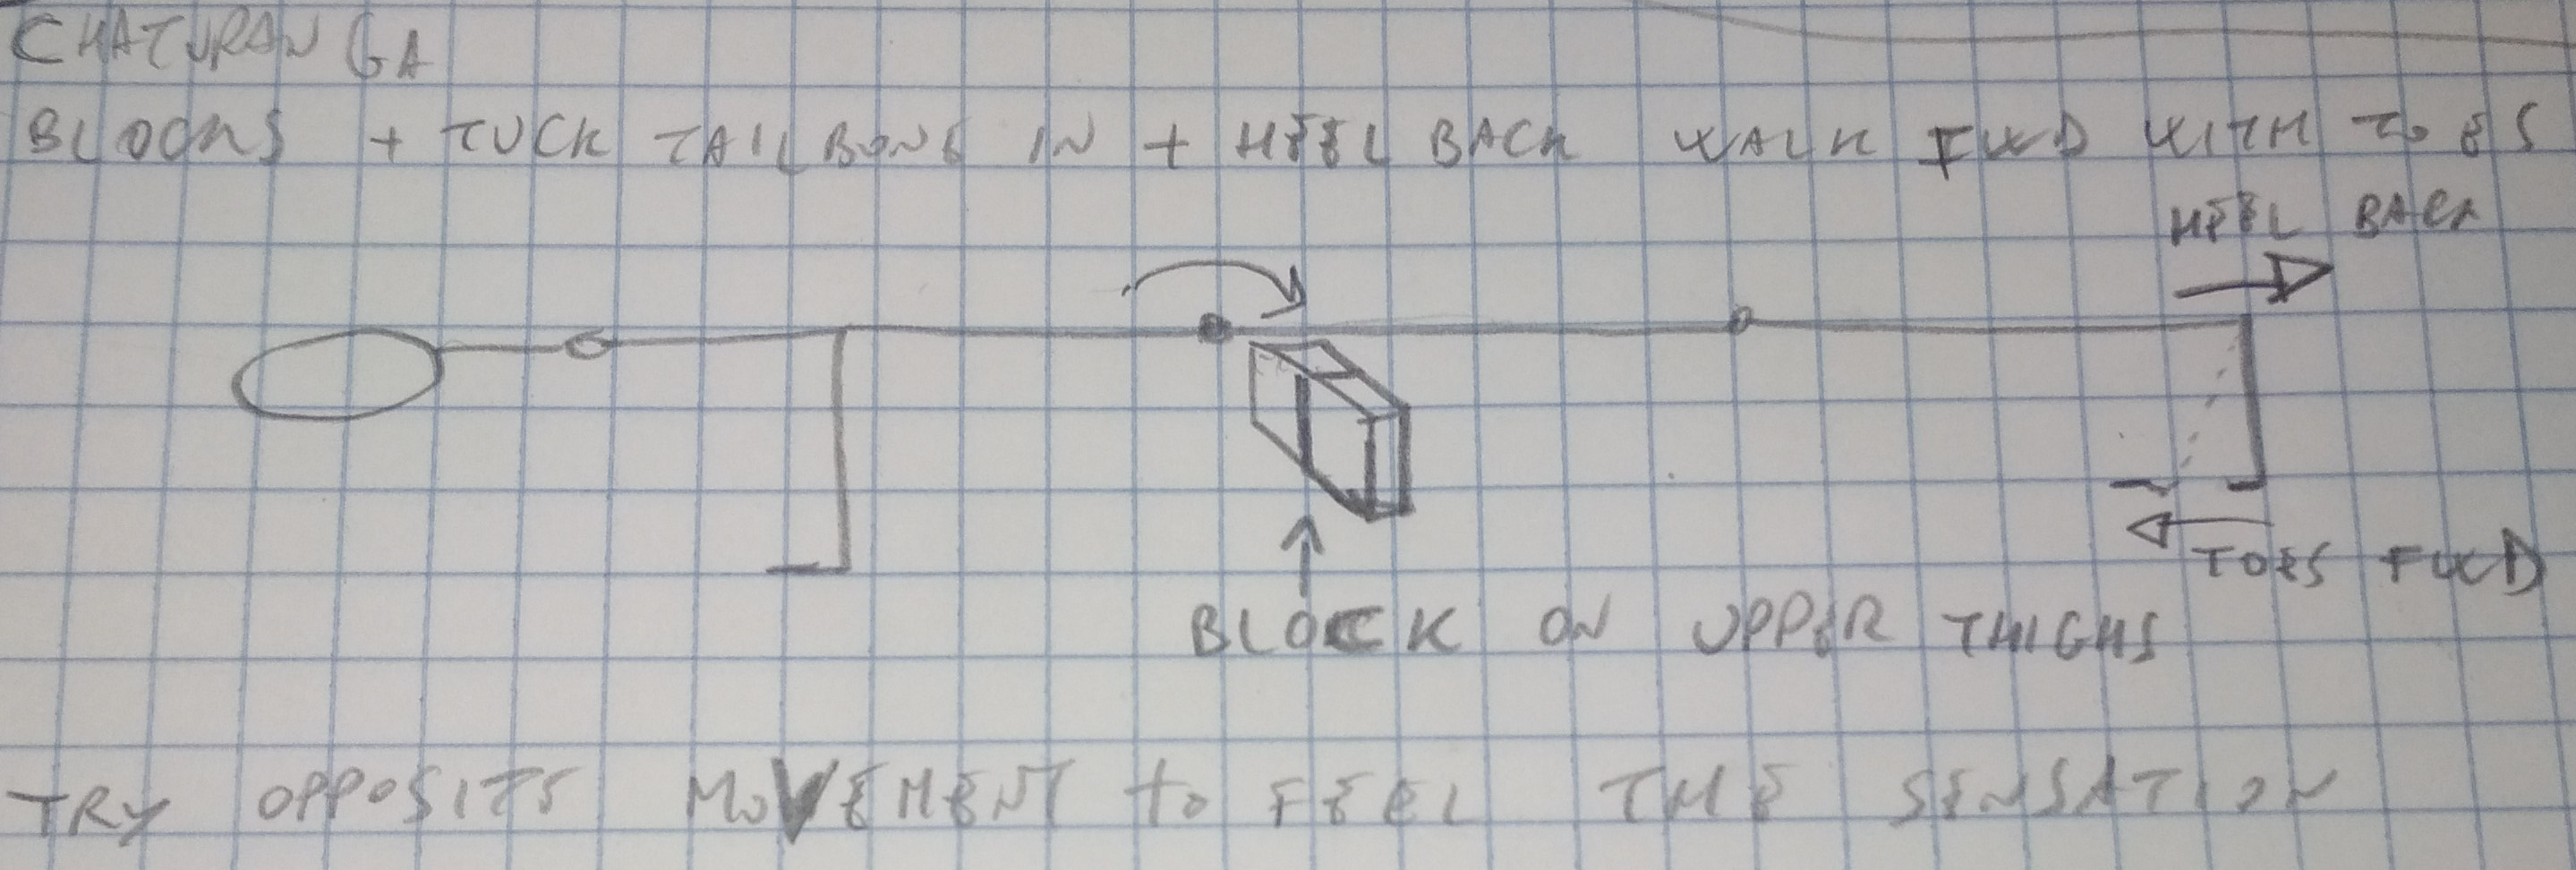 CHATURANGA
BLOCKS + TUCK TAILBONE IN + HEEL BACK WALK FWD WITH TOES
HEEL BACK
TOES FWD
BLOCK ON UPPER THIGHS
TRY OPPOSITE MOVEMENT to FEEL THE SENSATION